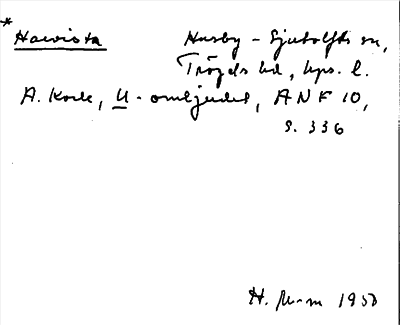 * Hawista Husby-Sjutolfts sn,
Trögds hd, Ups. l.
A. Kock, U-omljudet, ANF 10,
s. 336
H. 1950